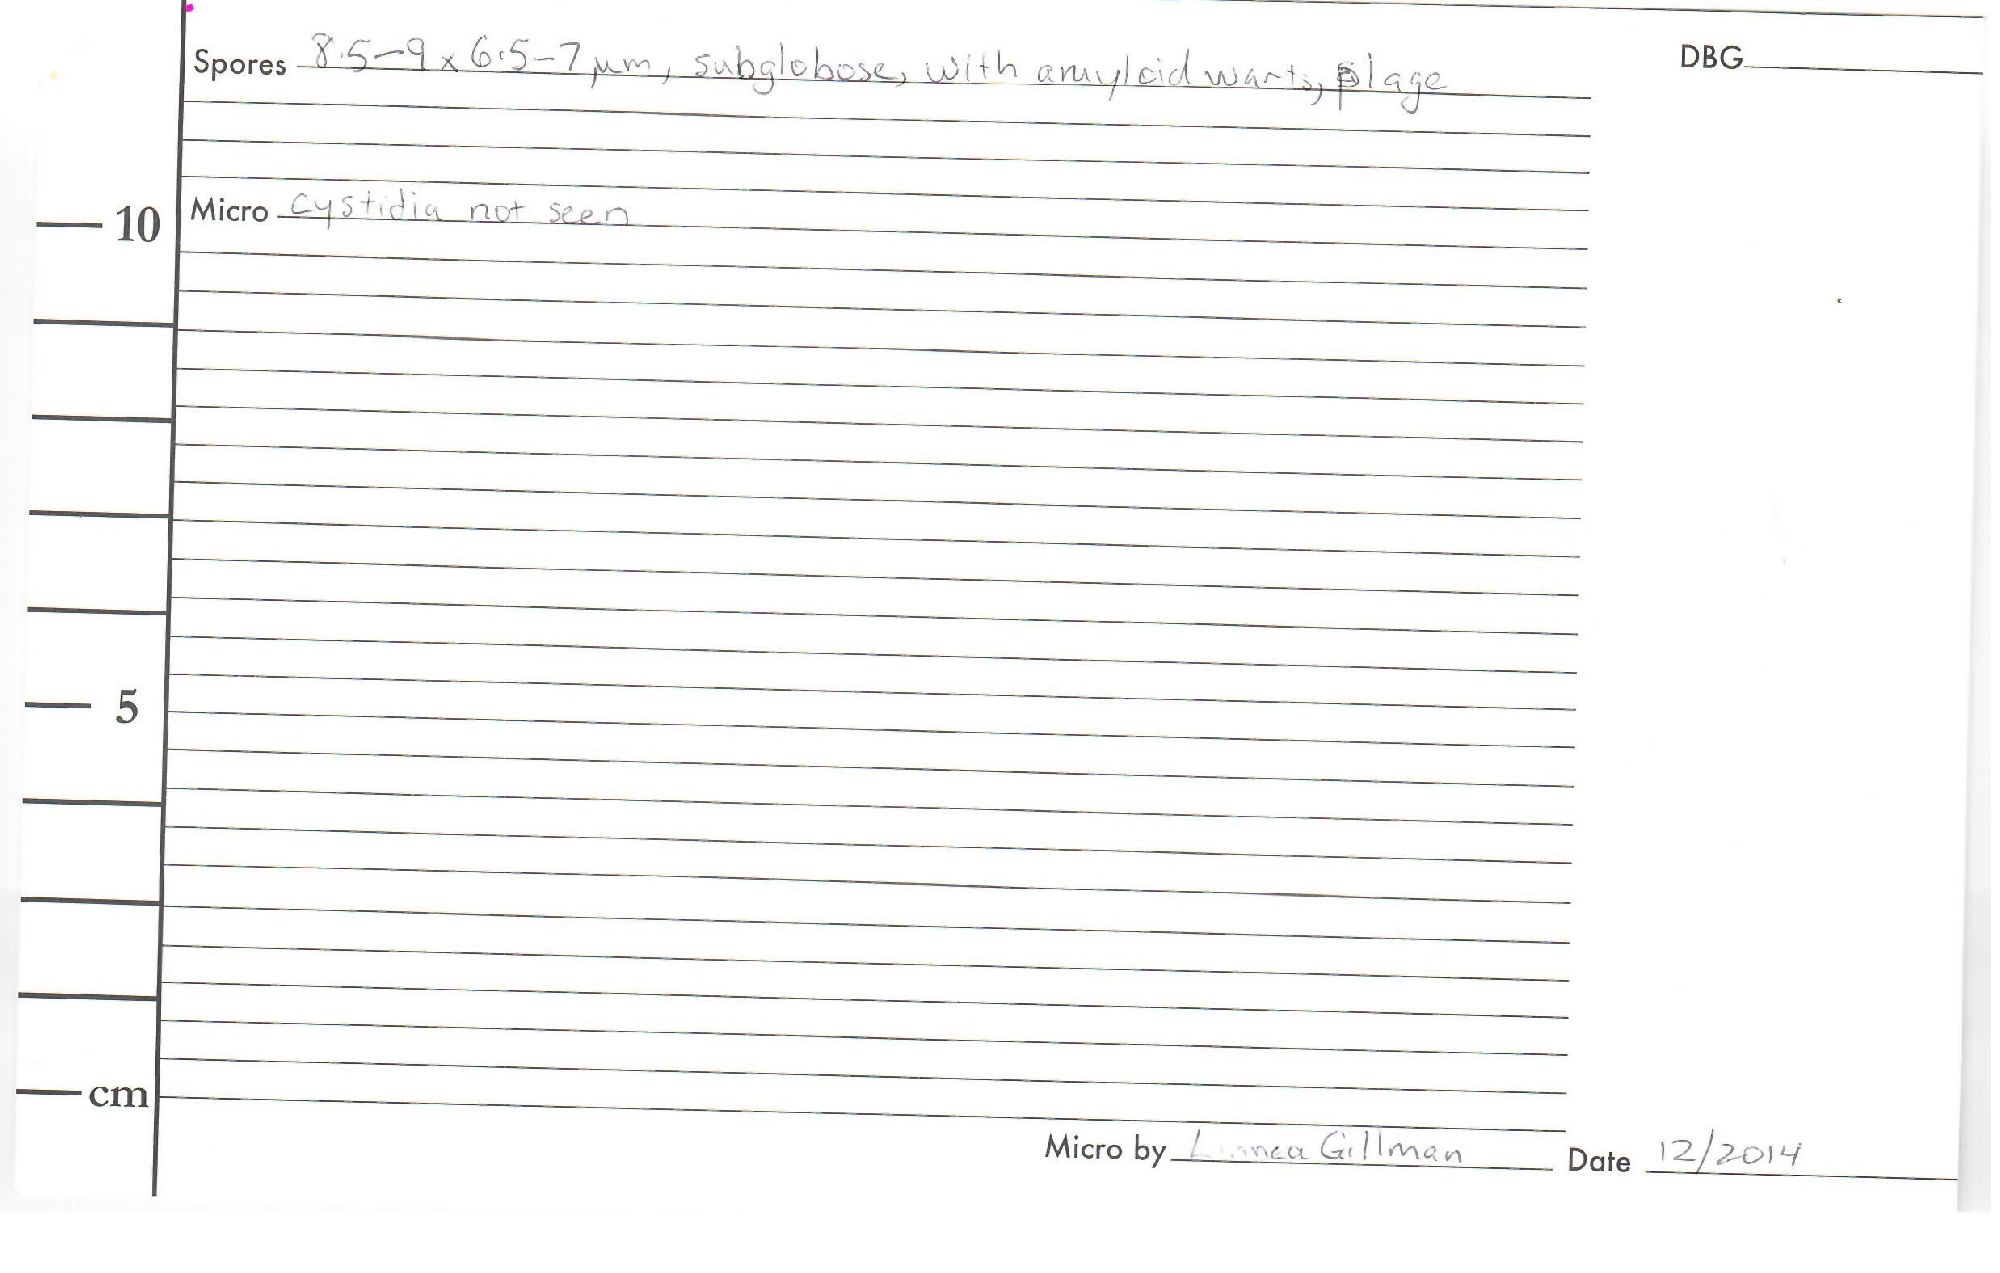 Spores 8.5-9 x 6.5-7 µm, subglobose, with amyloid warts, plage
DBG
Micro cystidia not seen
10
5
cm
Micro by Linnea Gillman Date 12/2014